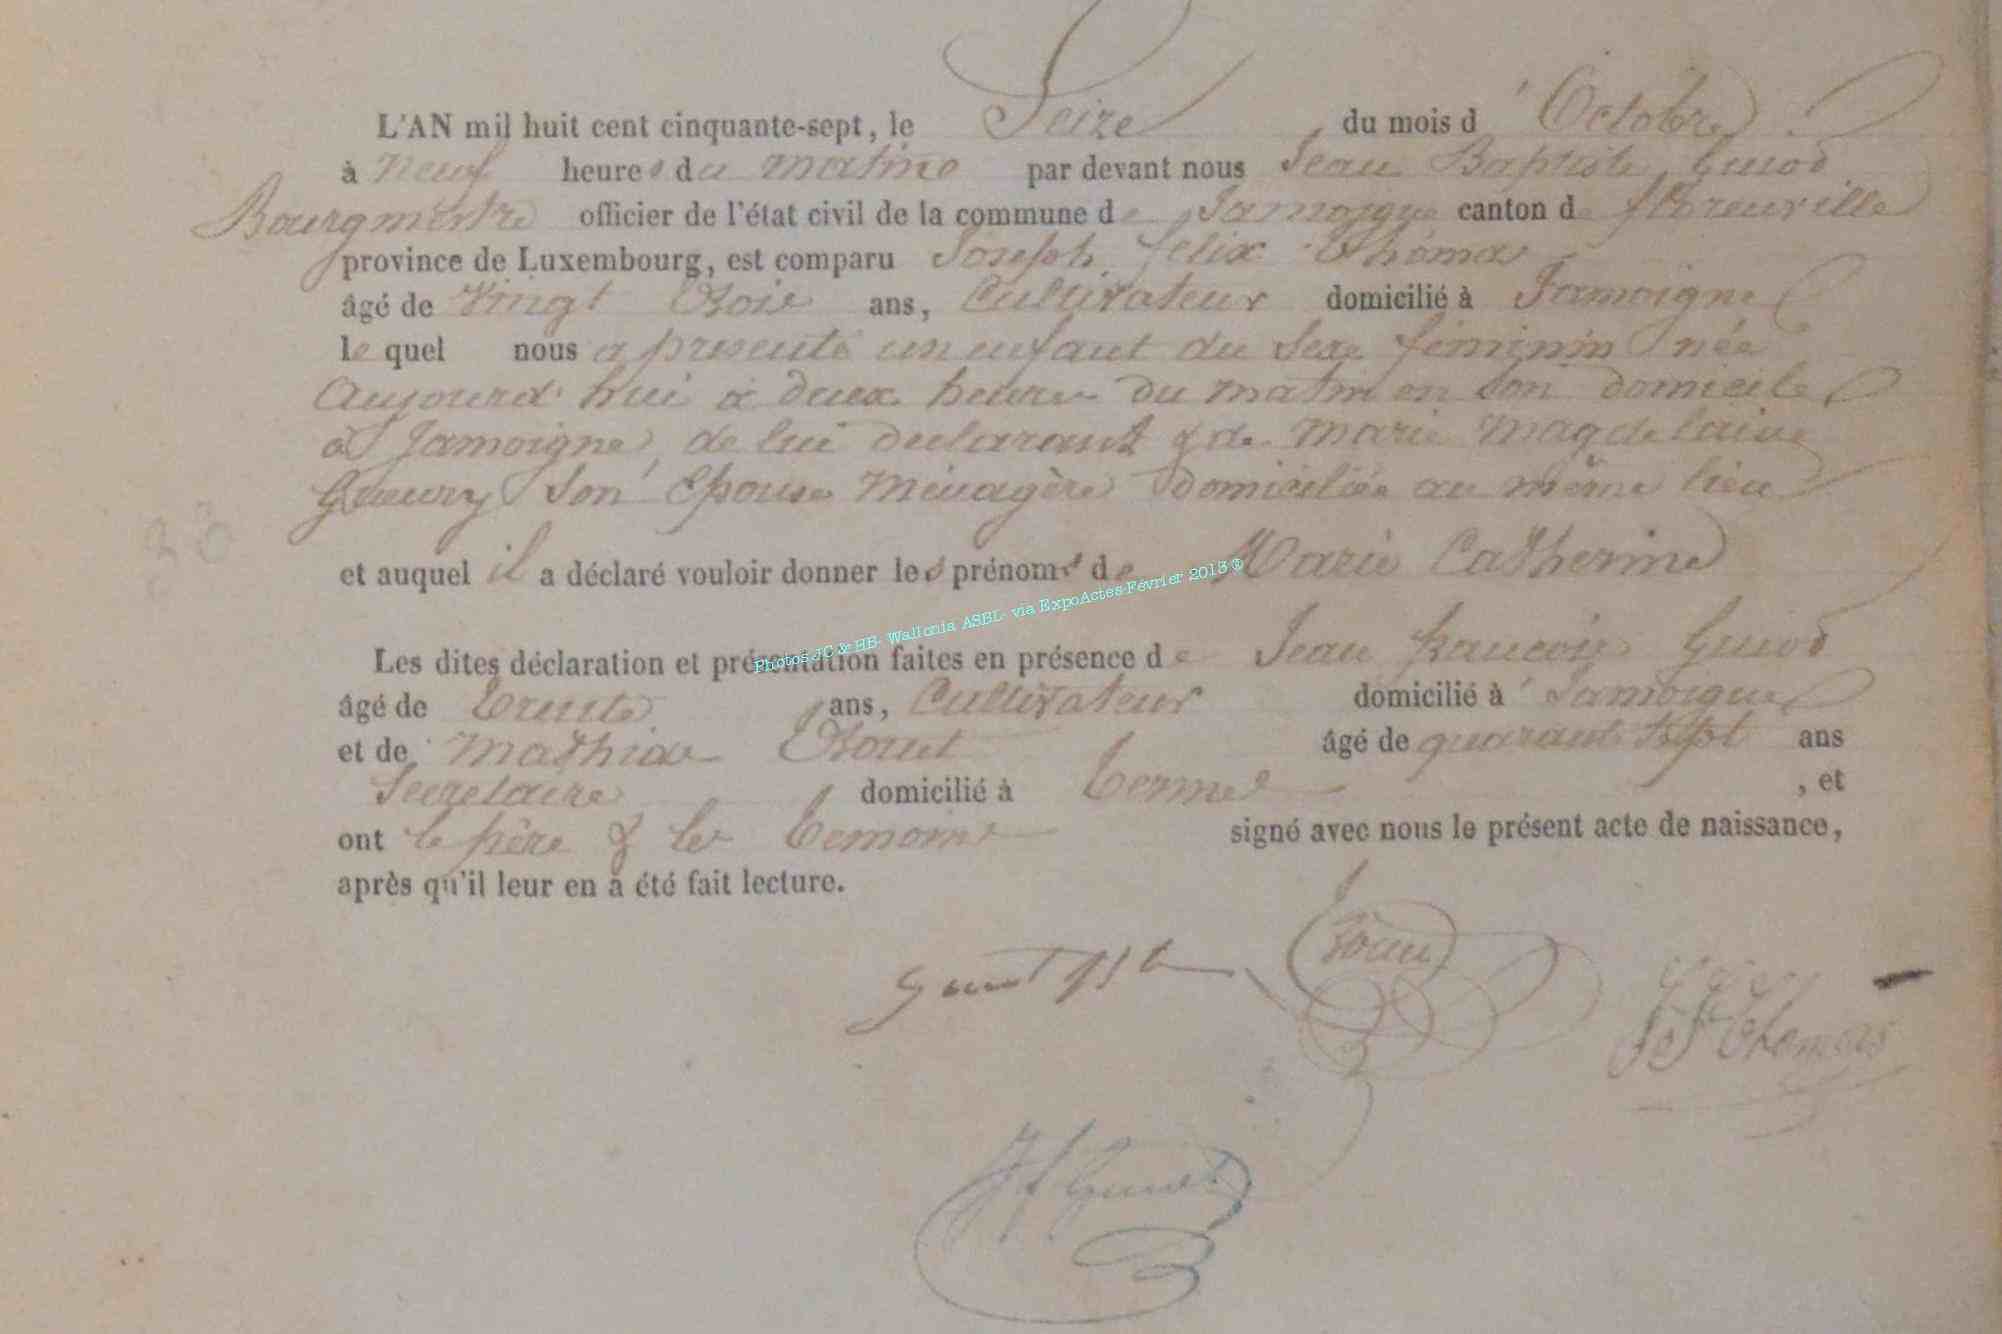 L'AN mil huit cent cinquante-sept, le Seize du mois d'Octobre
à neuf heures du matin par devant nous Jean Baptiste Guiot
Bourgmestre officier de l'état civil de la commune de Jamoigne canton de florenville
province de Luxembourg, est comparu Joseph felix Thomas
âgé de Vingt trois ans, Cultivateur domicilié à Jamoigne
lequel nous a présenté un enfant du Sexe féminin née
Aujourd'hui à deux heures du matin en Son domicile
à Jamoigne, de lui declarant & de Marie Magdelaine
Son Epouse Ménagère domiciliée au même lieu
30
et auquel il a déclaré vouloir donner les prénoms de Marie Catherine
Photos JC & HB- Wallonia ASBL- via ExpoActes Février 2013 ®
Les dites déclaration et présentation faites en présence de Jean françois Guiot
âgé de trente ans, Cultivateur domicilié à Jamoigne
et de Mathias âgé de quarante Sept ans
Secretaire domicilié à termes , et
ont le père & les temoins signé avec nous le présent acte de naissance,
après qu'il leur en a été fait lecture.
Guiot JB
J F Thomas
J f Guiot